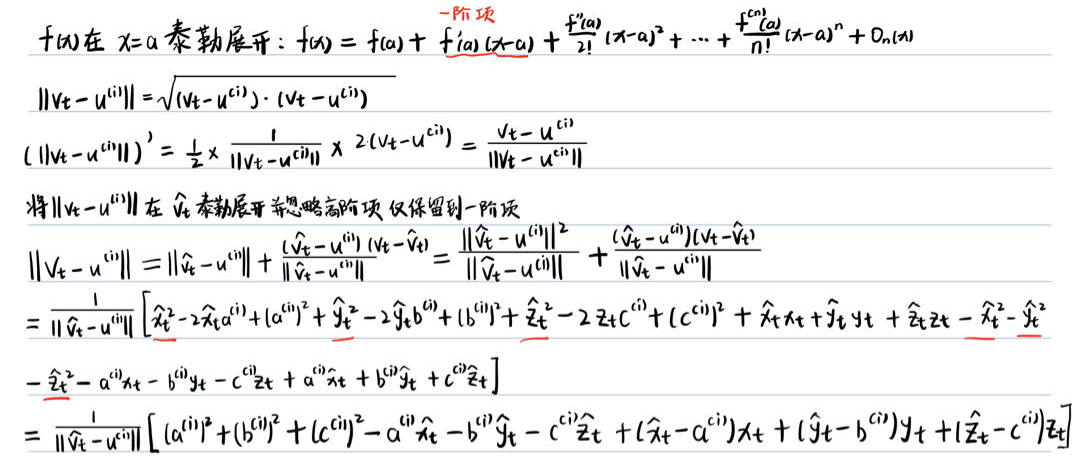 一阶项
f(x)在 x=a 泰勒展开: f(x) = f(a) + f'(a)(x-a) + \frac{f''(a)}{2!}(x-a)^2 + … + \frac{f^{(n)}(a)}{n!}(x-a)^n + O_n(x)
||v_t-u^{(i)}|| = \sqrt{(v_t-u^{(i)})·(v_t-u^{(i)})}
(||v_t-u^{(i)}||)' = \frac{1}{2} × \frac{1}{||v_t-u^{(i)}||} × 2·(v_t-u^{(i)}) = \frac{v_t-u^{(i)}}{||v_t-u^{(i)}||}
将||v_t-u^{(i)}||在 \hat{v}_t 泰勒展开并忽略高阶项 仅保留到一阶项
||v_t-u^{(i)}|| = ||\hat{v}_t-u^{(i)}|| + \frac{(\hat{v}_t-u^{(i)})(v_t-\hat{v}_t)}{||\hat{v}_t-u^{(i)}||} = \frac{||\hat{v}_t-u^{(i)}||^2}{||\hat{v}_t-u^{(i)}||} + \frac{(\hat{v}_t-u^{(i)})(v_t-\hat{v}_t)}{||\hat{v}_t-u^{(i)}||}
= \frac{1}{||\hat{v}_t-u^{(i)}||}[\hat{x}_t^2-2\hat{x}_ta^{(i)}+(a^{(i)})^2+\hat{y}_t^2-2\hat{y}_tb^{(i)}+(b^{(i)})^2+\hat{z}_t^2-2z_tc^{(i)}+(c^{(i)})^2+\hat{x}_tx_t+\hat{y}_ty_t+\hat{z}_tz_t-\hat{x}_t^2-\hat{y}_t^2
-\hat{z}_t^2-a^{(i)}x_t-b^{(i)}y_t-c^{(i)}z_t+a^{(i)}\hat{x}_t+b^{(i)}\hat{y}_t+c^{(i)}\hat{z}_t]
= \frac{1}{||\hat{v}_t-u^{(i)}||}[(a^{(i)})^2+(b^{(i)})^2+(c^{(i)})^2-a^{(i)}\hat{x}_t-b^{(i)}\hat{y}_t-c^{(i)}\hat{z}_t+(\hat{x}_t-a^{(i)})x_t+(\hat{y}_t-b^{(i)})y_t+(\hat{z}_t-c^{(i)})z_t]